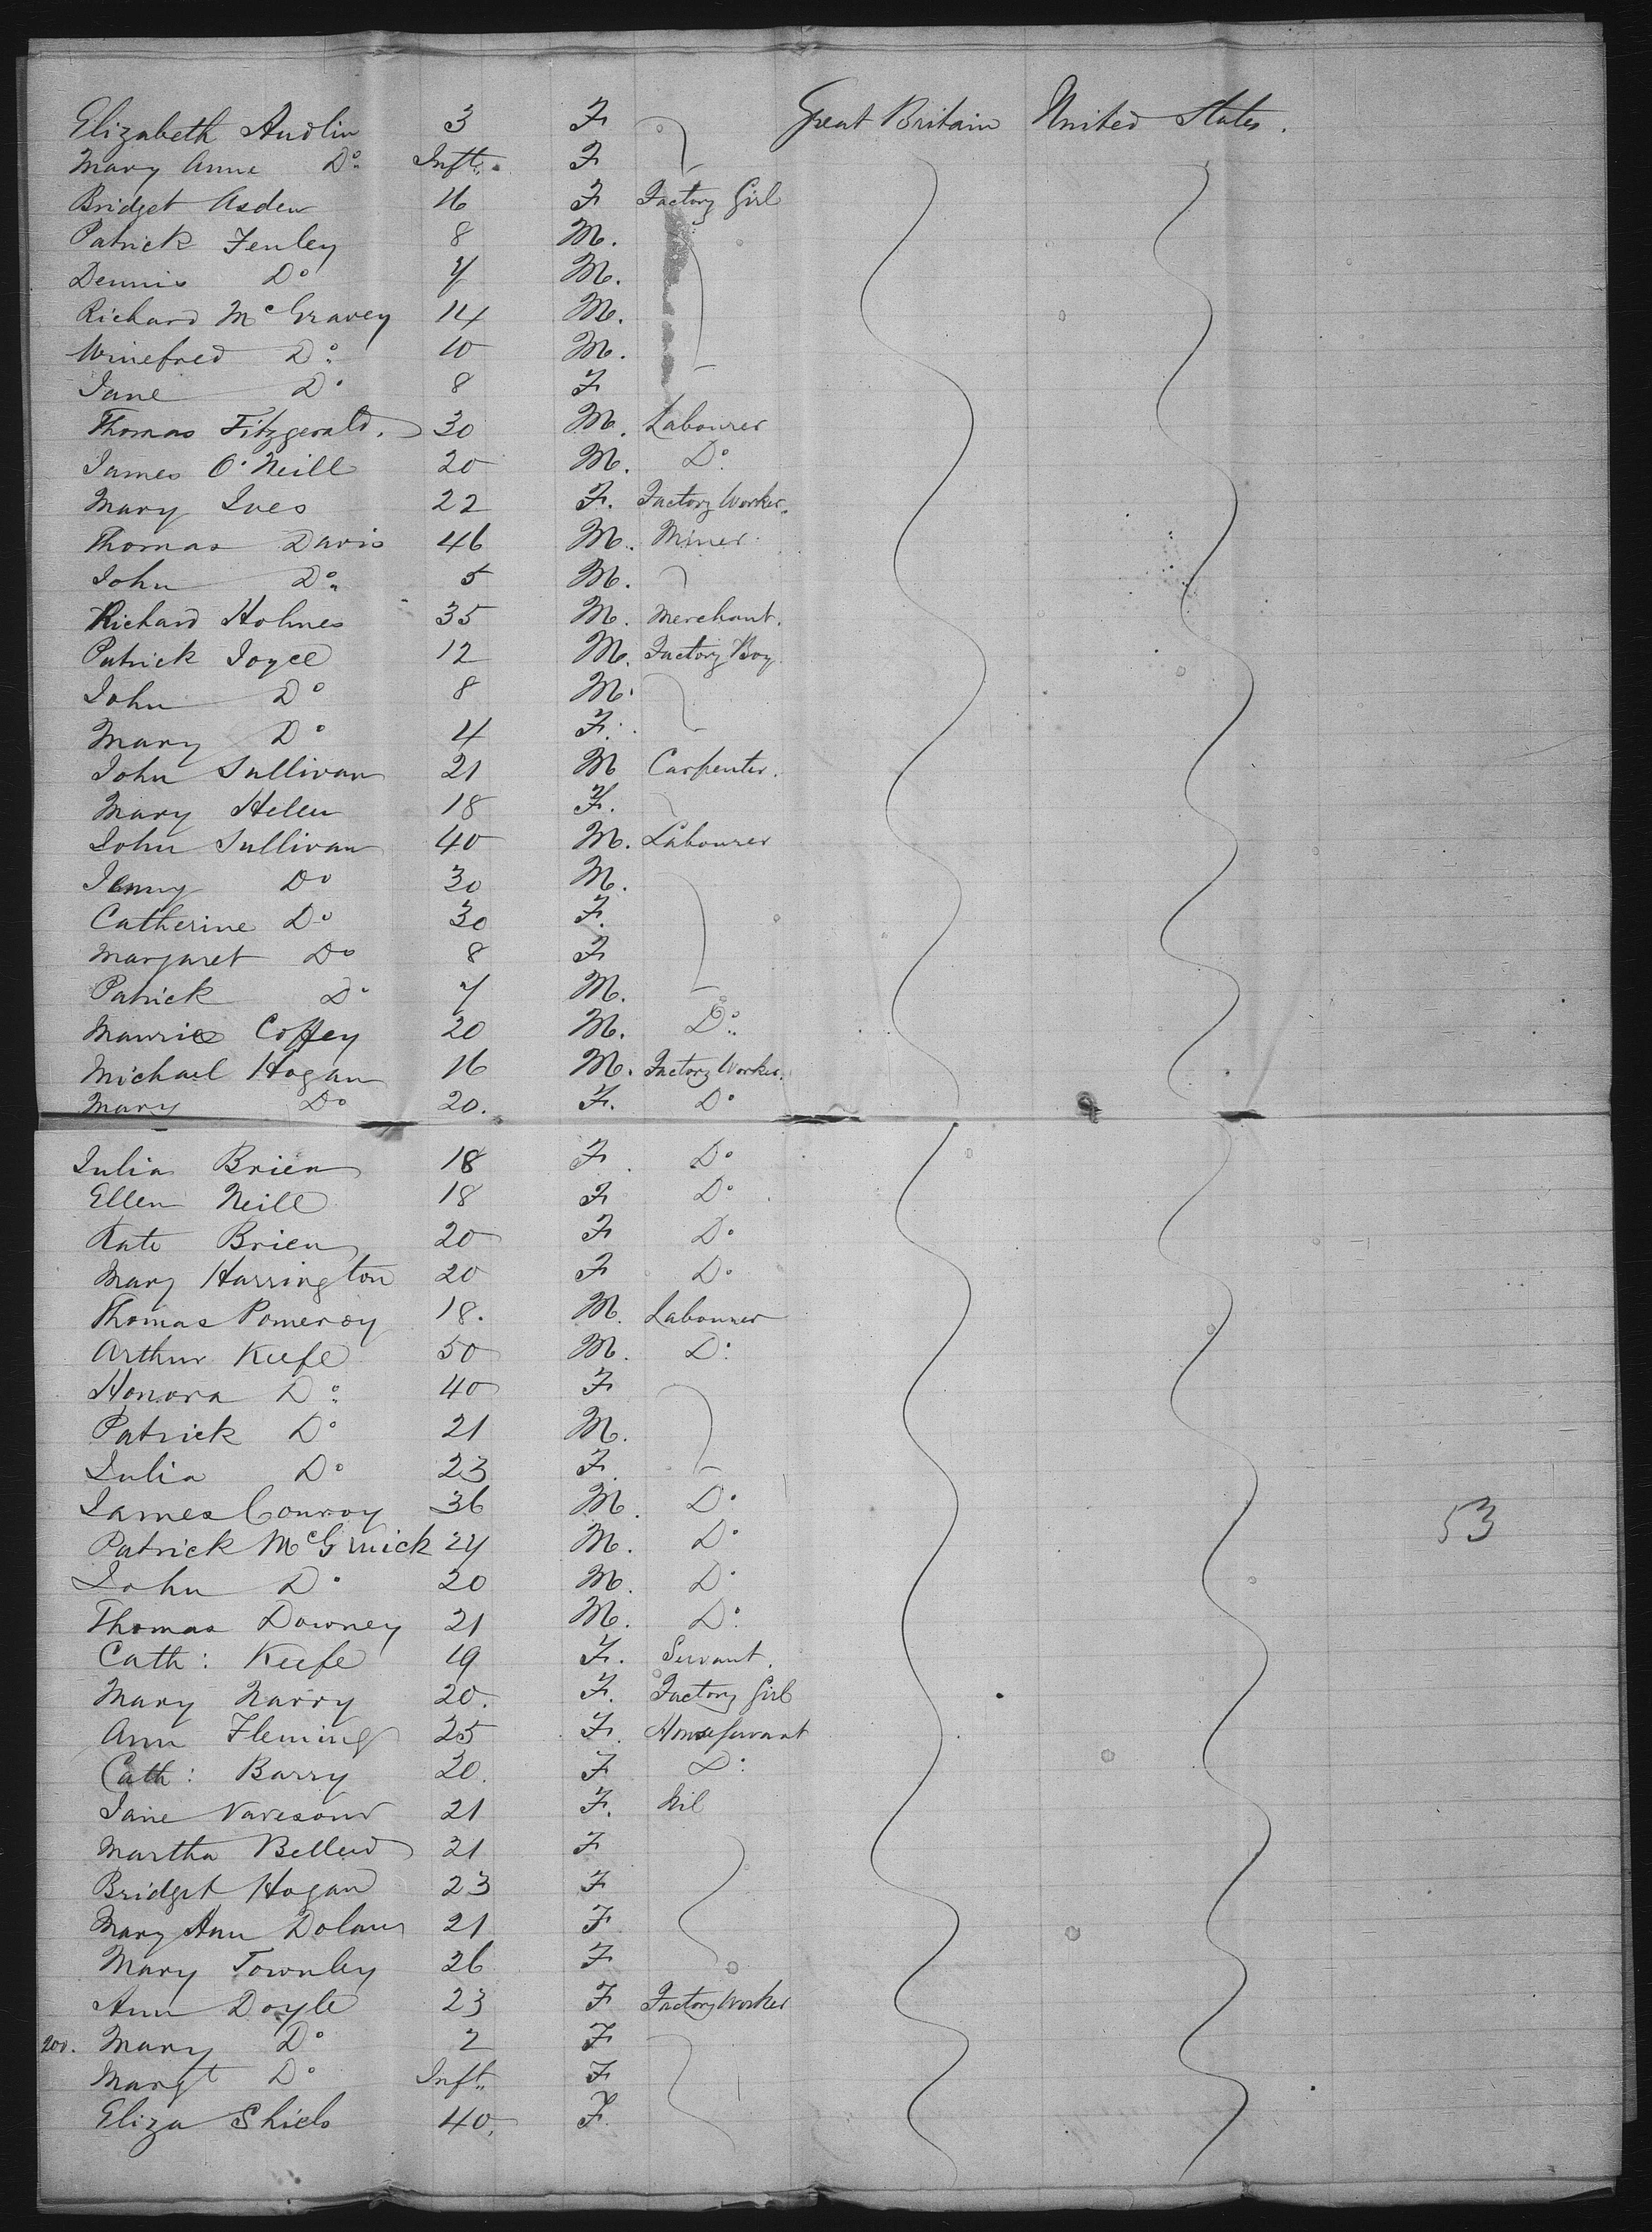 Elizabeth Audlin 3 F Great Britain United States.
Mary Anne Do. Inft. F
Bridget Asden 16 F Factory Girl
Patrick Fenley 8 M.
Dennis Do 7 M.
Richard McGravey 14 M.
Winefred Do. 10 M.
Jane Do 8 F
Thomas Fitzgerald. 30 M. Labourer
James O'Neill 20 M. Do.
Mary Ives 22 F. Factory Worker.
Thomas Davis 46 M. Miner
John Do. 5 M.
Richard Holmes 35 M. Merchant.
Patrick Joyce 12 M. Factory Boy
John Do 8 M.
Mary Do 4 F.
John Sullivan 21 M Carpenter.
Mary Helen 18 F.
John Sullivan 40 M. Labourer
Do 30 M.
Catherine Do 30 F.
Margaret Do 8 F
Patrick Do 7 M.
Maurice Coffey 20 M. Do.
Michael Hogan 16 M. Factory Worker.
Mary Do 20. F. Do
Julia Brien 18 F. Do
Ellen Neill 18 F Do
Kate Brien 20 F Do
Mary Harrington 20 F Do
Thomas Pomeroy 18. M. Labourer
Arthur Keefe 50 M. Do.
Honora Do. 40 F
Patrick Do 21 M.
Julia Do 23 F.
James Conroy 36 M. Do
Patrick 24 M. Do 53
John Do 20 M. Do
Thomas Downey 21 M. Do.
Cath: Keefe 19 F. Servant.
Mary Narry 20. F. Factory Girl
Ann Fleming 25 F. House servant
Cath: Barry 20. F Do.
Jane 21 F. Nil
Martha Bellew 21 F
Bridget Hogan 23 F
Mary Ann Dolan 21 F
Mary Townley 26 F
Ann Doyle 23 F Factory Worker
200. Mary Do 2 F
Margt Do Inft. F
Eliza Shiels 40. F.